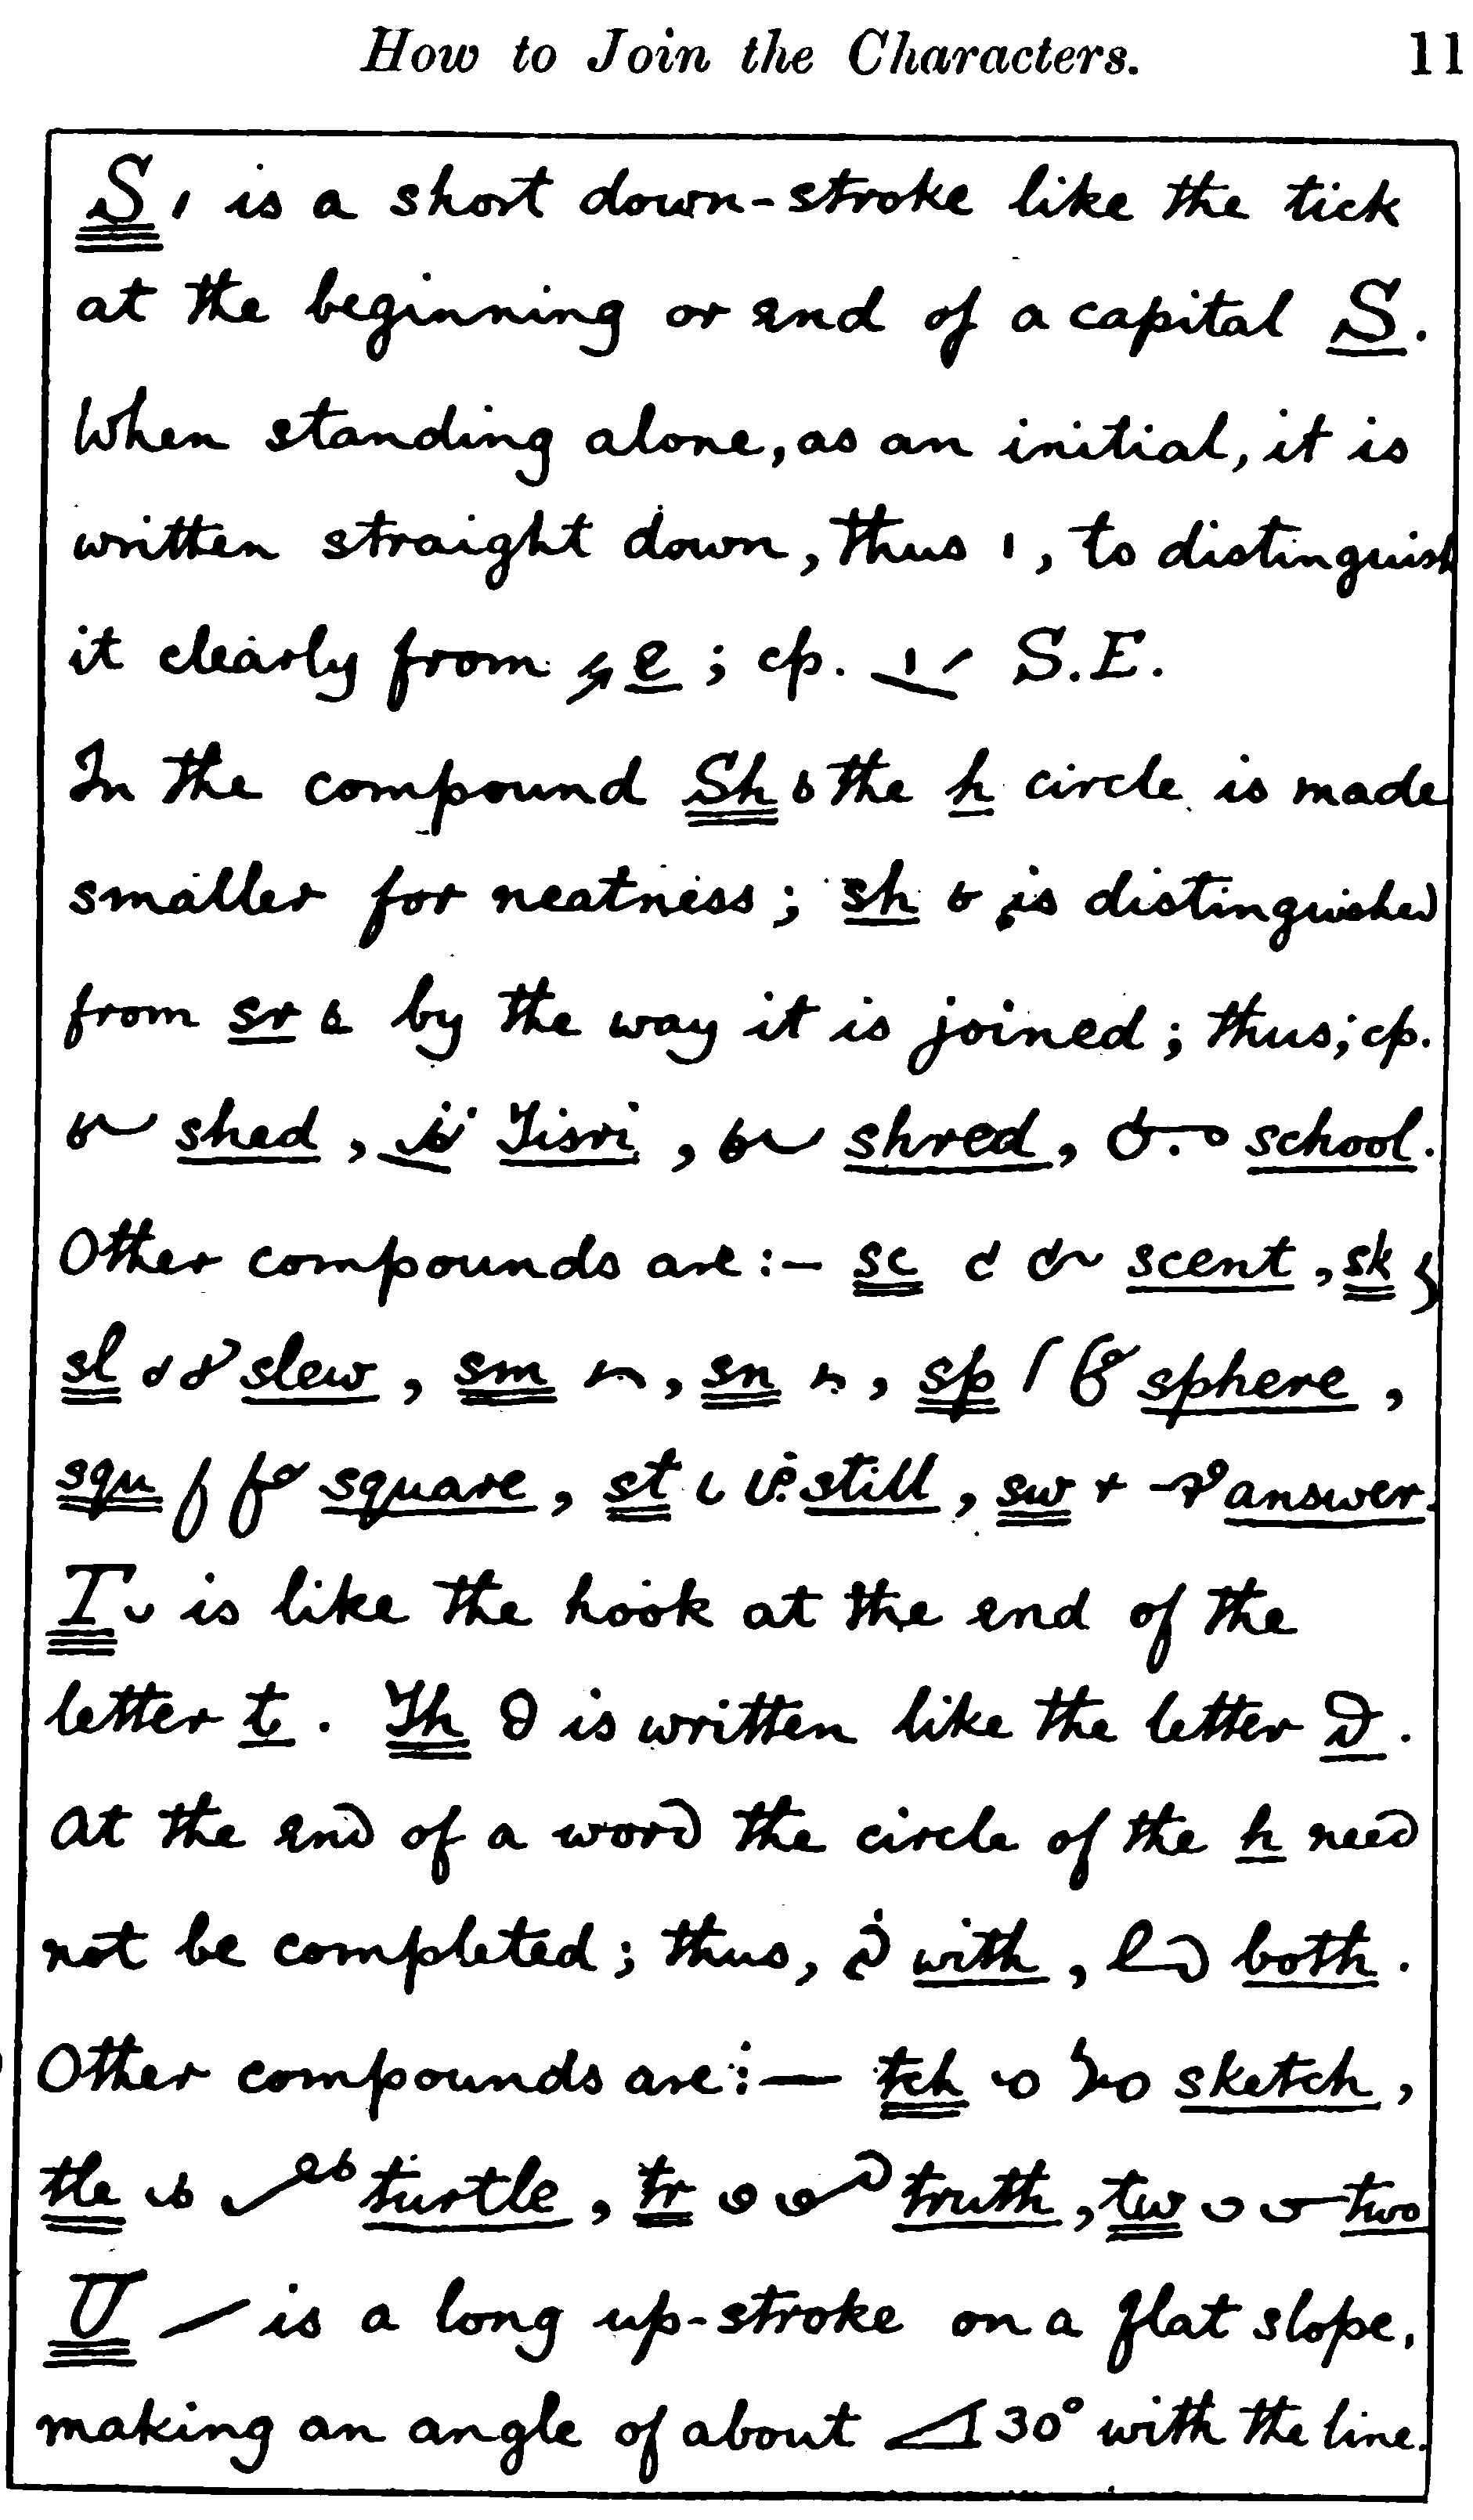 How to Join the Characters. 11
S is a short down-stroke like the tick
at the beginning or end of a capital S.
When standing alone, as an initial, it is
written straight down, thus , to distinguish
it clearly from e; cp. S.E.
In the compound Sh the h circle is made
smaller for neatness; sh is distinguished
from sr by the way it is joined; thus; cp.
shed, Tisri, shred, school.
Other compounds are:— sc scent, sk
sl slew, sm , sn , sp sphere,
squ square, st still, sw answer.
T is like the hook at the end of the
letter t. Th is written like the letter D.
At the end of a word the circle of the h need
not be completed; thus, with, both.
Other compounds are:— tch sketch,
tle turtle, tr truth, tw two
U is a long up-stroke on a flat slope,
making an angle of about 30° with the line.